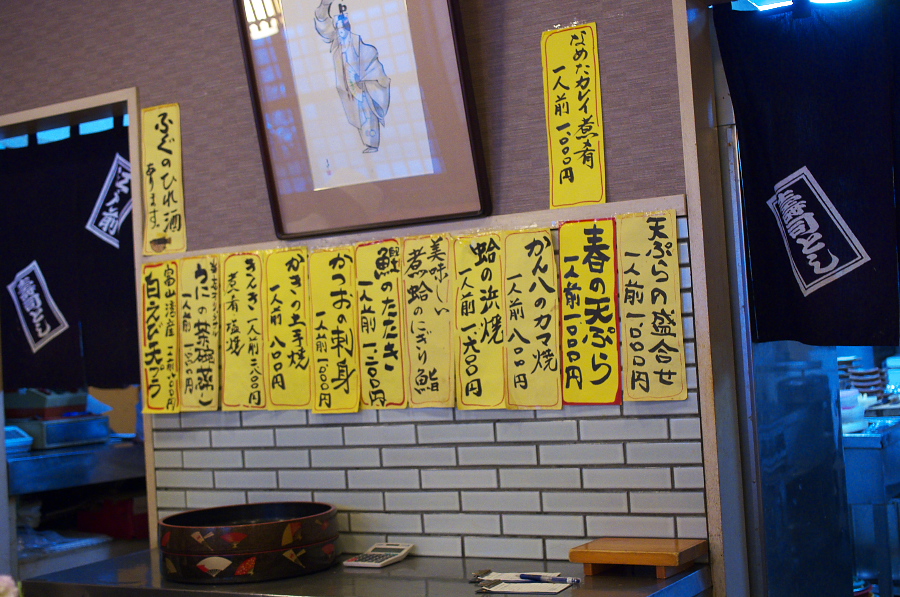 なめたカレイ煮肴
一人前 一、〇〇〇円
ふぐのひれ酒
あります。
天ぷらの盛合せ
一人前 一、〇〇〇円
春の天ぷら
一人前 一、〇〇〇円
かん八のカマ焼
一人前 八〇〇円
蛤の浜焼
一人前 一、六〇〇円
美味しい
煮蛤のにぎり鮨
鰹のたたき
一人前 一、二〇〇円
かつおの刺身
一人前 一、〇〇〇円
かきの土手焼
一人前 八〇〇円
きんき 一人前
煮肴 塩焼
うにの茶碗蒸し
富山湾産
白えび天ぷら
寿司とん